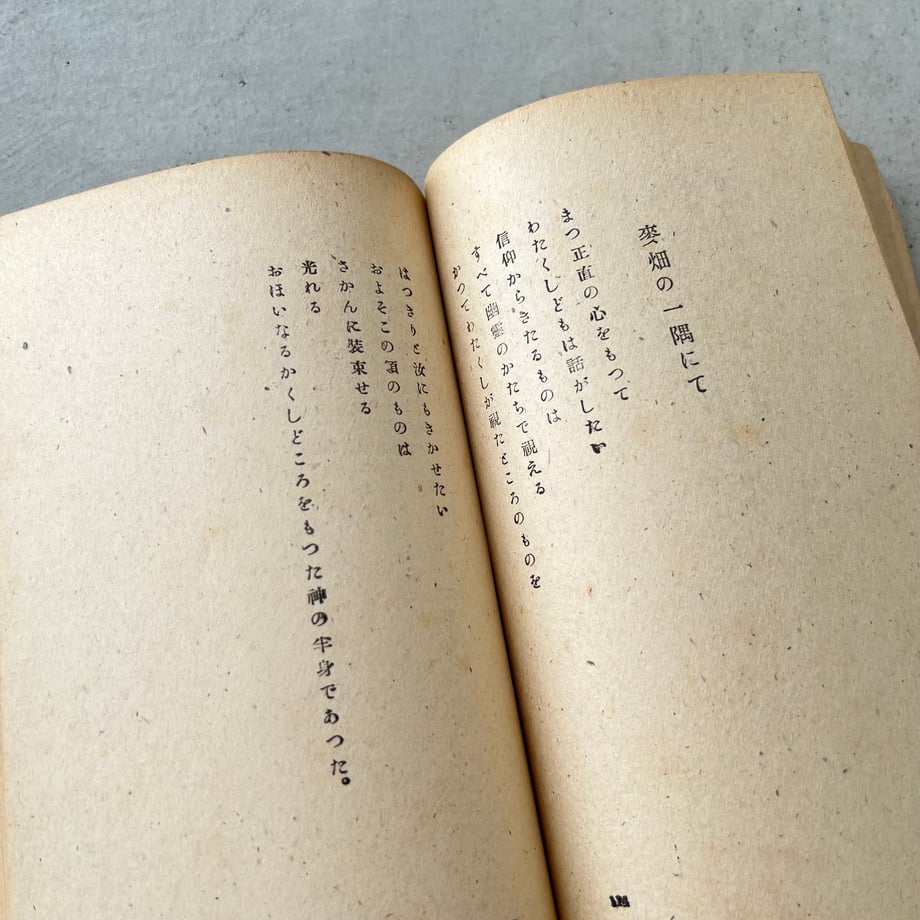 麥畑の一隅にて
まつ正直の心をもつて
わたくしどもは話がしたい
信仰からきたるものは
すべて幽靈のかたちで視える
かつてわたくしが視たところのものを
はつきりと汝にもきかせたい
およそこの類のものは
さかんに裝束せる
光れる
おほいなるかくしどころをもつた神の半身であつた。